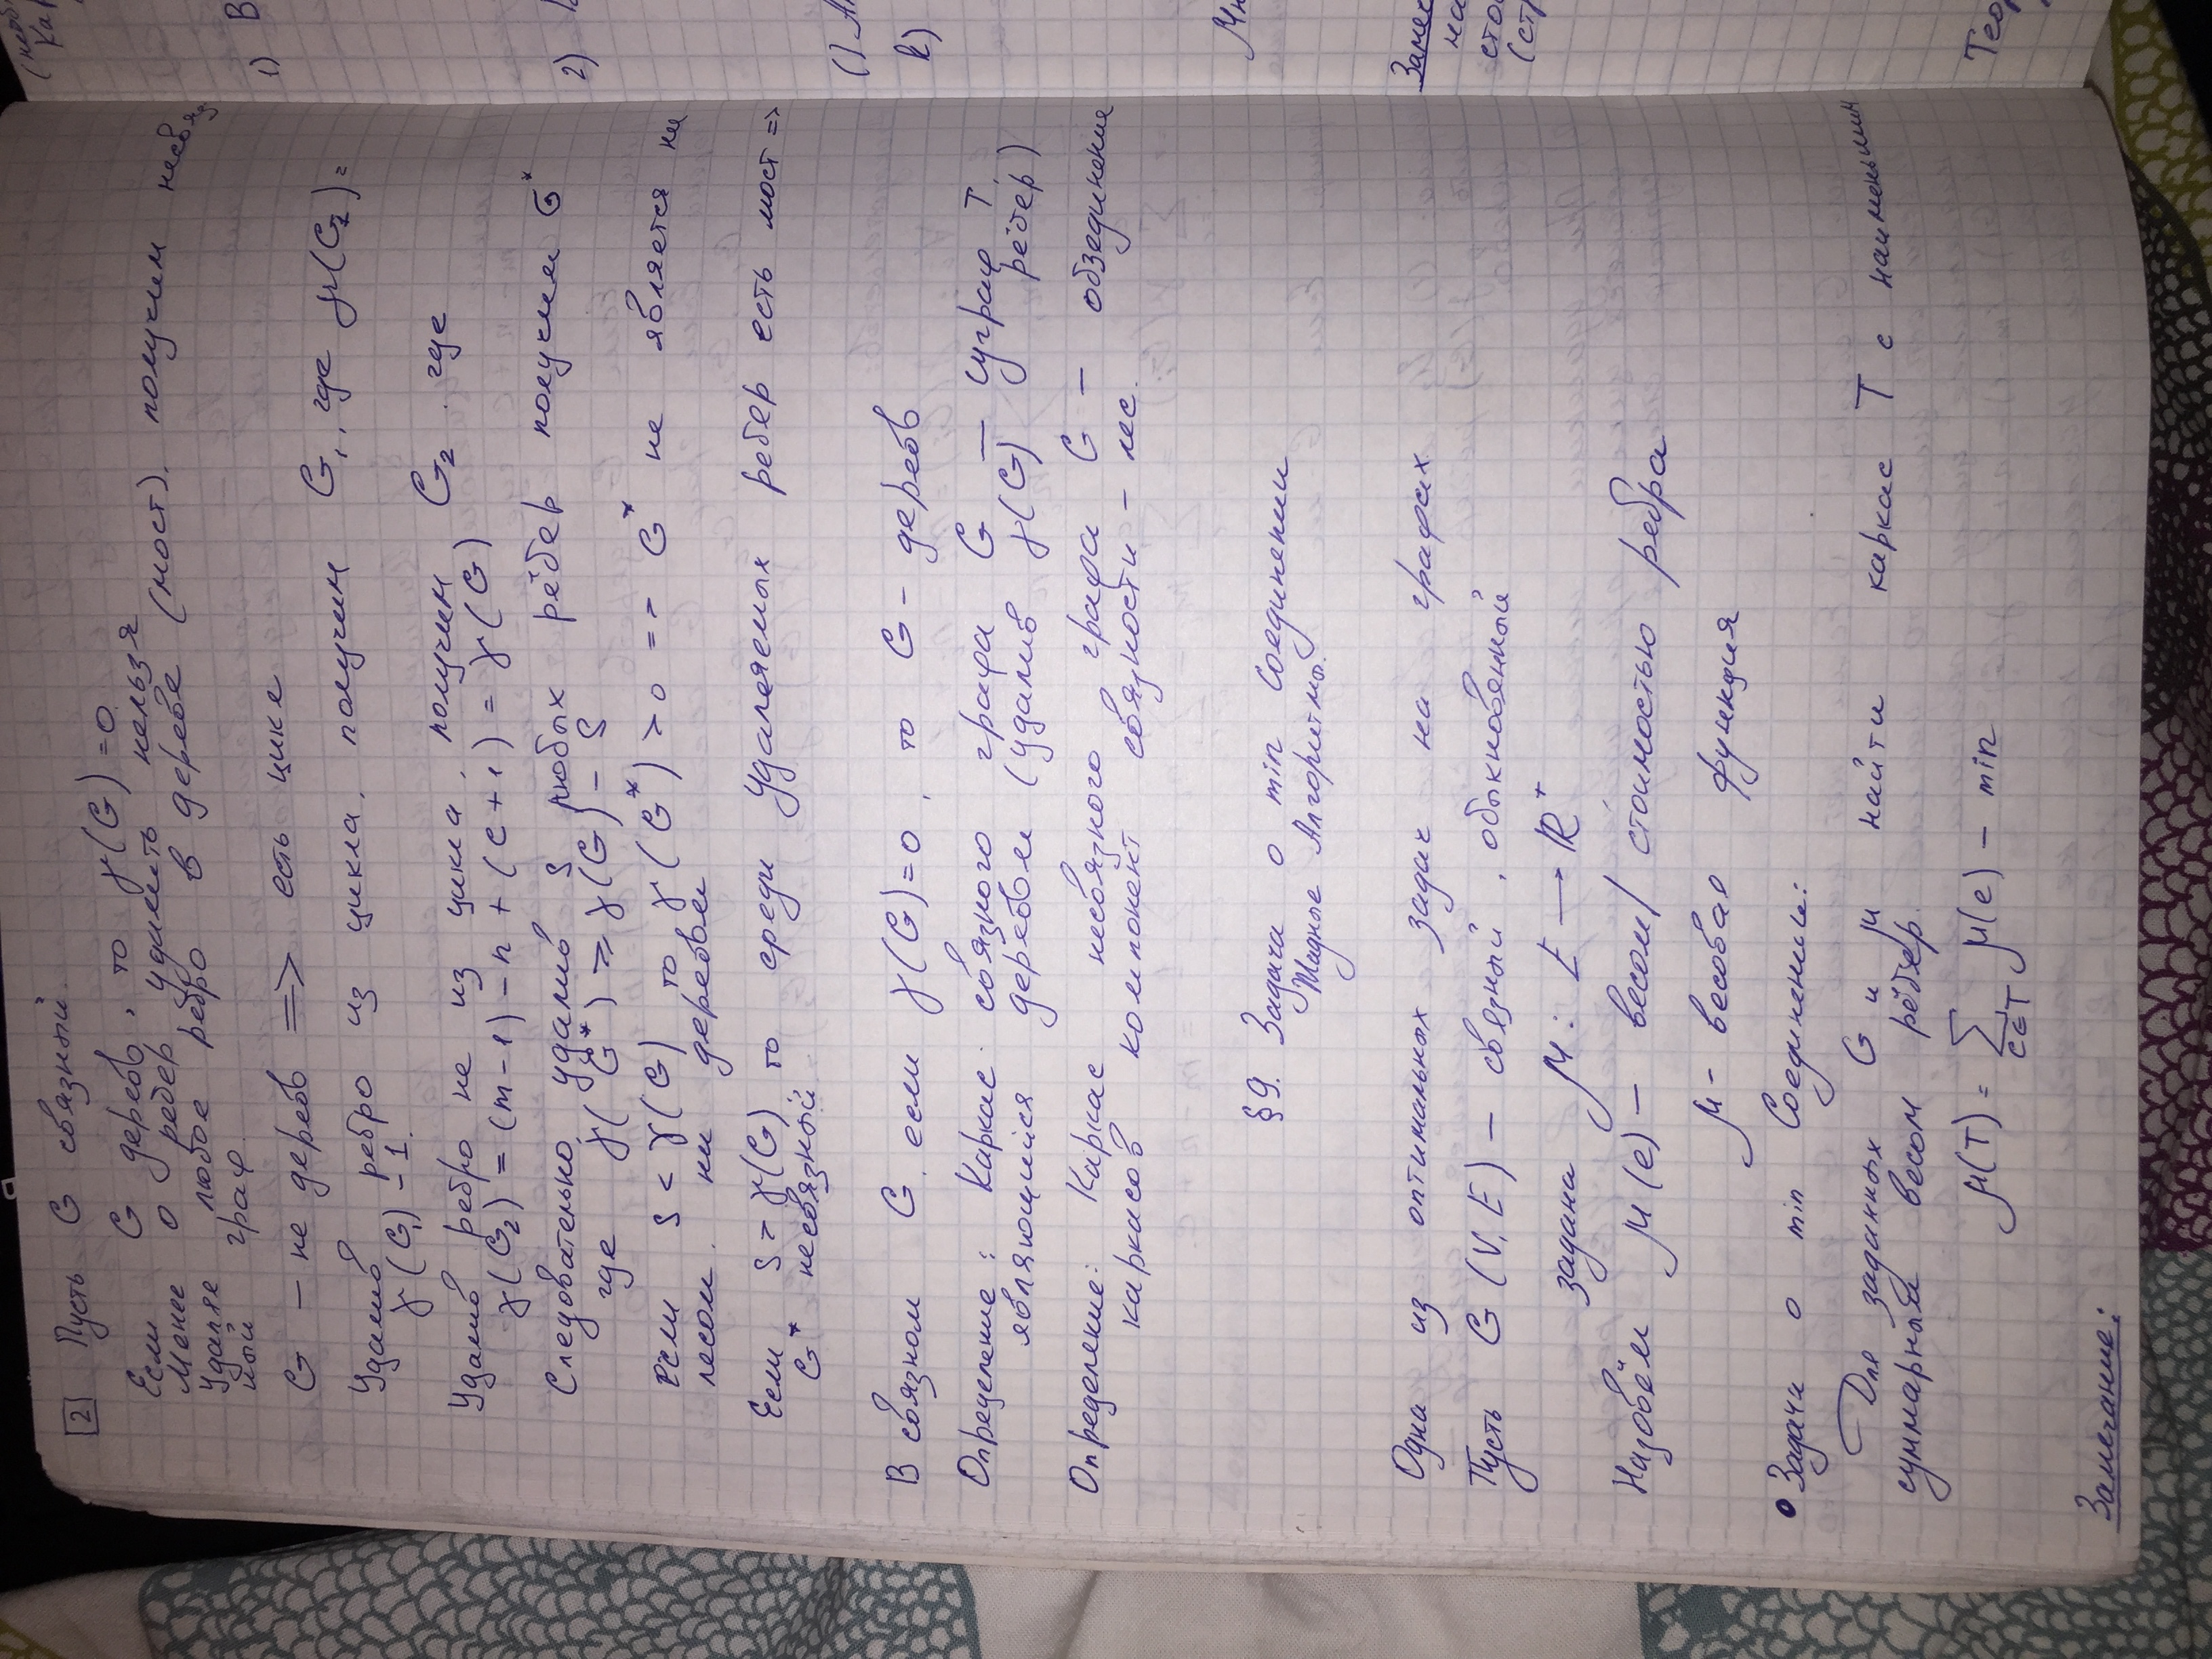 2 Пусть G связный.
Если G дерево, то γ(G) = 0
Менее 0 ребер удалить нельзя
Удаляя любое ребро в дереве (мост), получим несвяз
ный граф.
G – не дерево => есть цикл
Удалив ребро из цикла, получим G₁, где γ(G₁) =
γ(G) – 1.
Удалив ребро не из цикла, получим G₂, где
γ(G₂) = (m-1) – n + (c+1) = γ(G)
Следовательно, удалив S любых рёбер получим G*
где γ(G*) ≥ γ(G) – S
Если S < γ(G) то γ(G*) > 0 => G* не является ни
лесом, ни деревом
Если S > γ(G), то среди удаляемых ребер есть мост =>
G* несвязный.
В связном G, если γ(G)=0, то G – дерево
Определение: Каркас связного графа G – суграф T,
являющийся деревом (удалив γ(G) рёбер)
Определение: Каркас несвязного графа G – объединение
каркасов компонент связности – лес.
§9. Задача о min Соединении
Жадные Алгоритмы.
Одна из оптимальных задач на графах.
Пусть G (V, E) – связный, обыкновенный
задана μ: E → ℝ⁺
Назовём μ(e) – весом/ стоимостью ребра
μ – весовая функция
• Задача о min Соединении:
Для заданных G и μ найти каркас T с наименьшим
суммарным весом рёбер.
μ(T) = ∑ μ(e) – min
e∈T
Замечание:
1) В
2)
k)
Замеч
на
сто
(ст
Теор